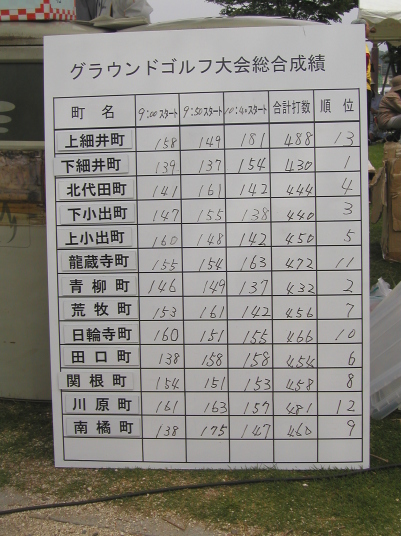 グラウンドゴルフ大会総合成績
町名 9:00スタート 9:50スタート 10:40スタート 合計打数 順位
上細井町 158 149 181 488 13
下細井町 139 137 154 430 1
北代田町 141 161 142 444 4
下小出町 147 155 138 440 3
上小出町 160 148 142 450 5
龍蔵寺町 155 154 163 472 11
青柳町 146 149 137 432 2
荒牧町 153 161 142 456 7
日輪寺町 160 151 155 466 10
田口町 138 158 158 454 6
関根町 154 151 153 458 8
川原町 161 163 157 481 12
南橘町 138 175 147 460 9